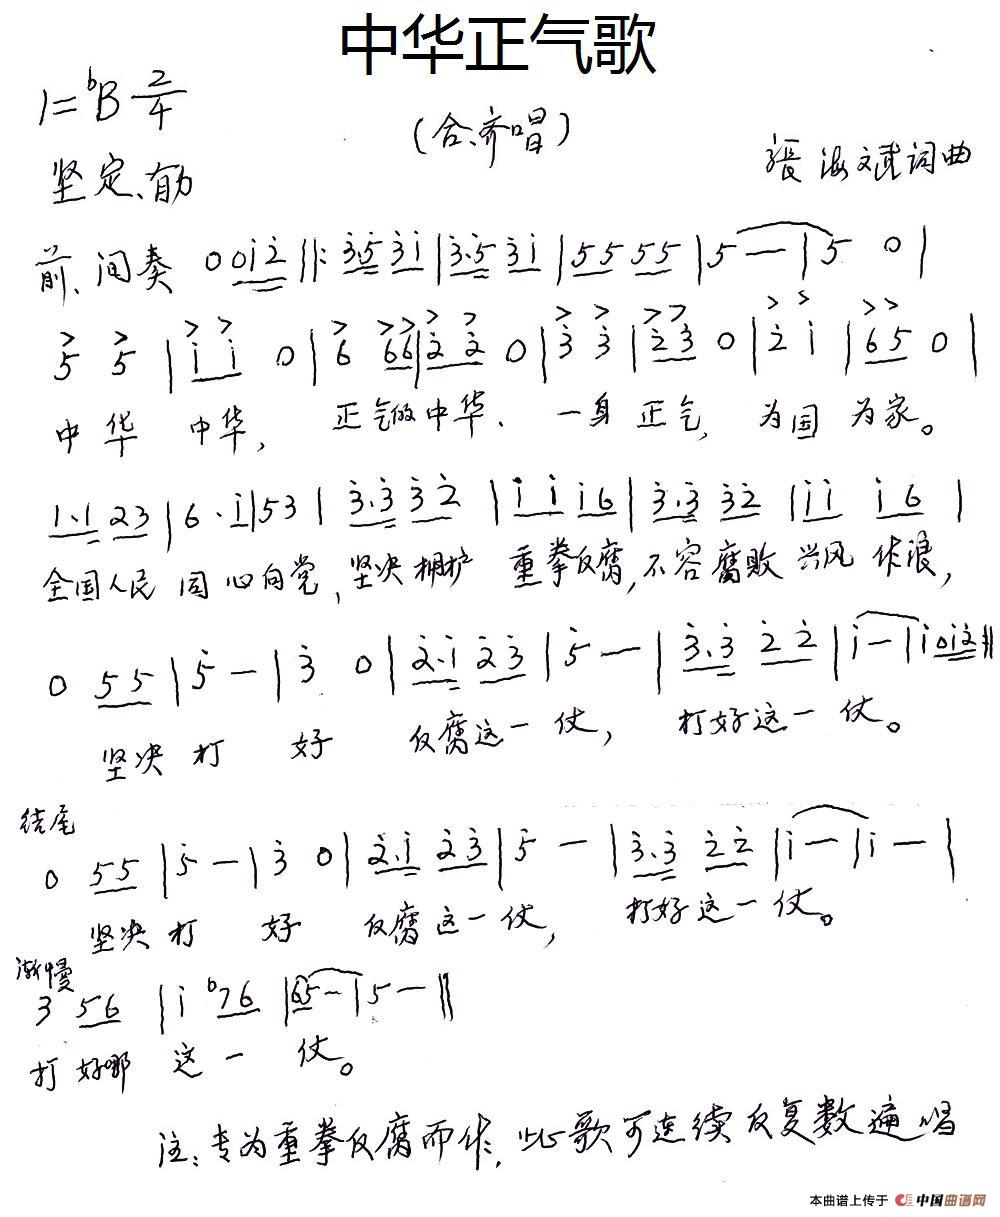 中华正气歌
1=♭B 2/4
(合、齐唱)
坚定、有力
張海斌词曲
前、间奏 0 0 0 i̇ 2̇ ‖: 3̇·5̇ 3̇ i̇ | 3̇·5̇ 3̇ i̇ | 5 5 5 5 | 5 — | 5 0 |
5 5 | i̇ i̇ 0 | 6 6 6 | 2̇ 2̇ 0 | 3̇ 3̇ | 2̇ 3̇ 0 | 2̇ i̇ | 6 5 0 |
中 华 中华, 正气的中华、 一身 正气, 为国 为家。
1·1 2 3 | 6 · i̇ | 5 3 | 3̇·3̇ 3̇ 2̇ | i̇ i̇ i̇ 6 | 3̇·3̇ 3̇ 2̇ | i̇ i̇ i̇ 6 |
全国人民 同心向党, 坚决拥护 重拳反腐, 不容腐败 兴风 作浪,
0 5 5 | 5̇ — | 3̇ 0 | 2̇·i̇ 2̇ 3̇ | 5̇ — | 3̇·3̇ 2̇ 2̇ | i̇ — | i̇ 0 i̇ 2̇ :‖
坚决 打 好 反腐这一 仗, 打好这一 仗。
结尾
0 5 5 | 5̇ — | 3̇ 0 | 2̇·i̇ 2̇ 3̇ | 5̇ — | 3̇·3̇ 2̇ 2̇ | i̇ — | i̇ — |
坚决 打 好 反腐这一仗, 打好这一仗。
渐慢
3 5 6 | i̇ ♭7 6 | 6 5 — | 5 — ‖
打 好哪 这 一 仗。
注:专为重拳反腐而作,此歌可连续反复数遍唱
本曲谱上传于 中国曲谱网